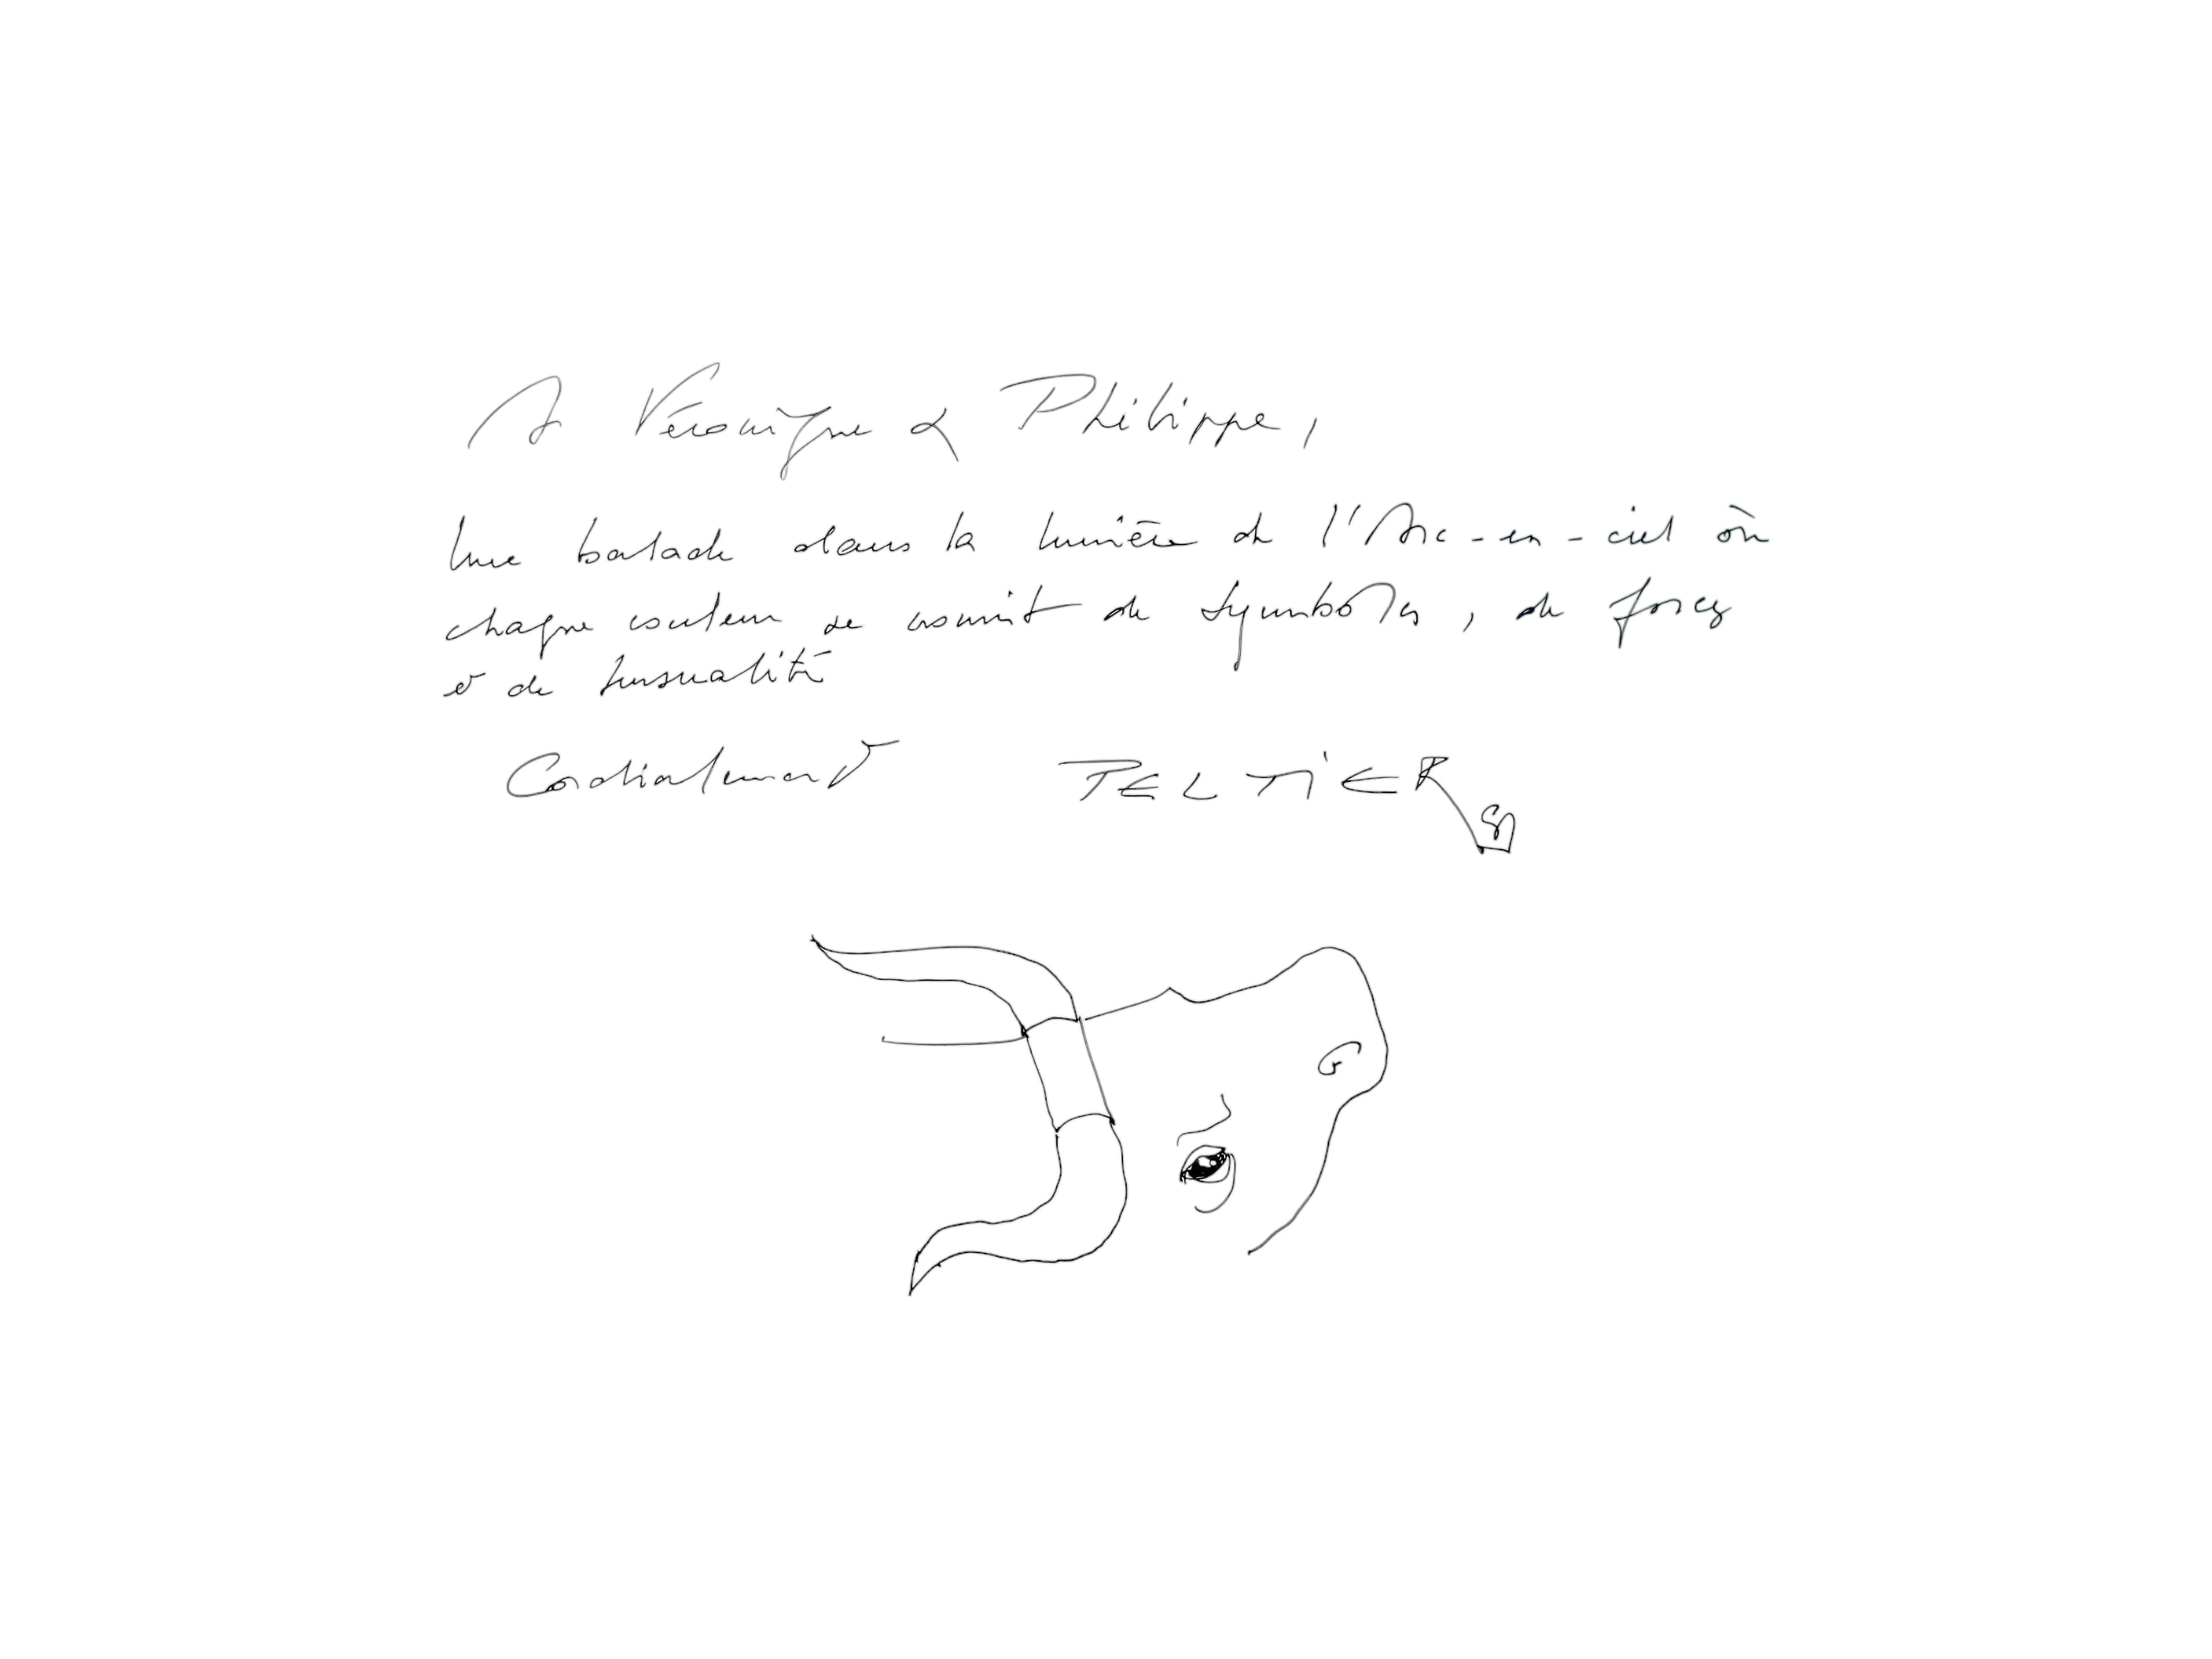 A Véronique & Philippe,
Une balade dans la lumière de l'Arc-en-ciel où
chaque couleur se nourrit de symboles, de forces
et de sensualité
Cordialement PELTIER